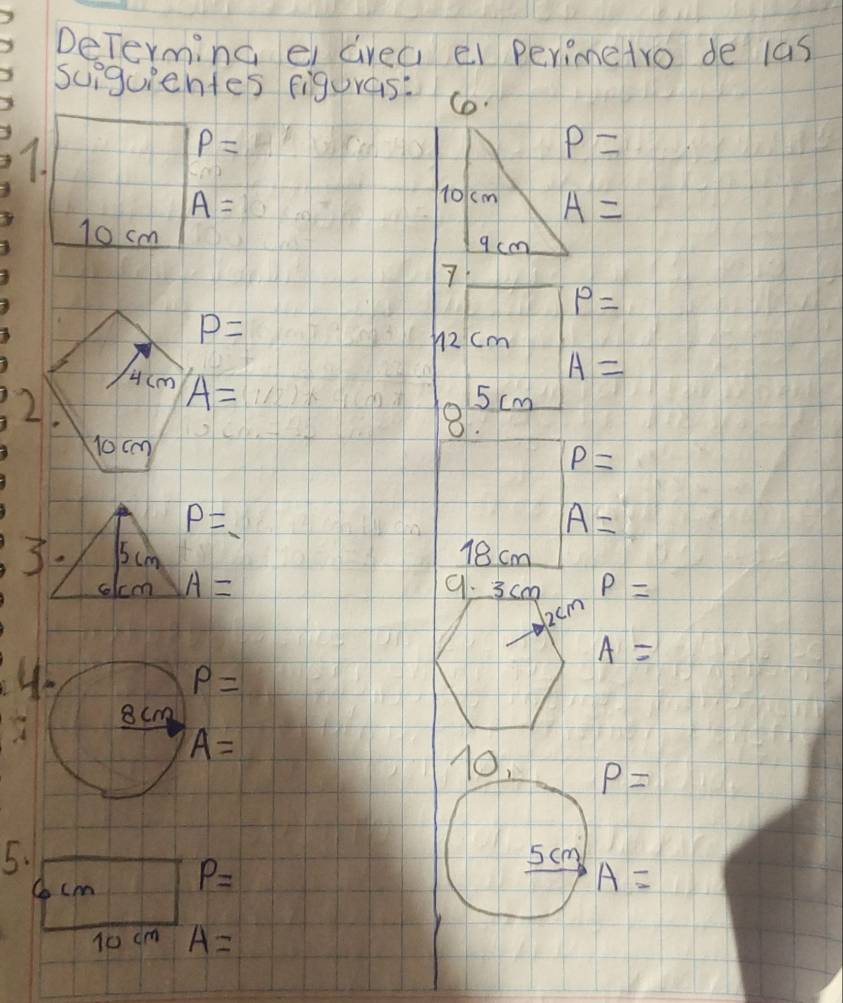 Determina el área el perimetro de las
suiguientes figuras:
1.
P =
A =
10 cm
2.
P =
4 cm
A =
10 cm
3.
P =
5 cm
6 cm
A =
4.
P =
8 cm
A =
5.
6 cm
P =
10 cm
A =
6.
P =
10 cm
A =
9 cm
7.
P =
12 cm
A =
5 cm
8.
P =
A =
18 cm
9.
3 cm
P =
2 cm
A =
10.
P =
5 cm
A =